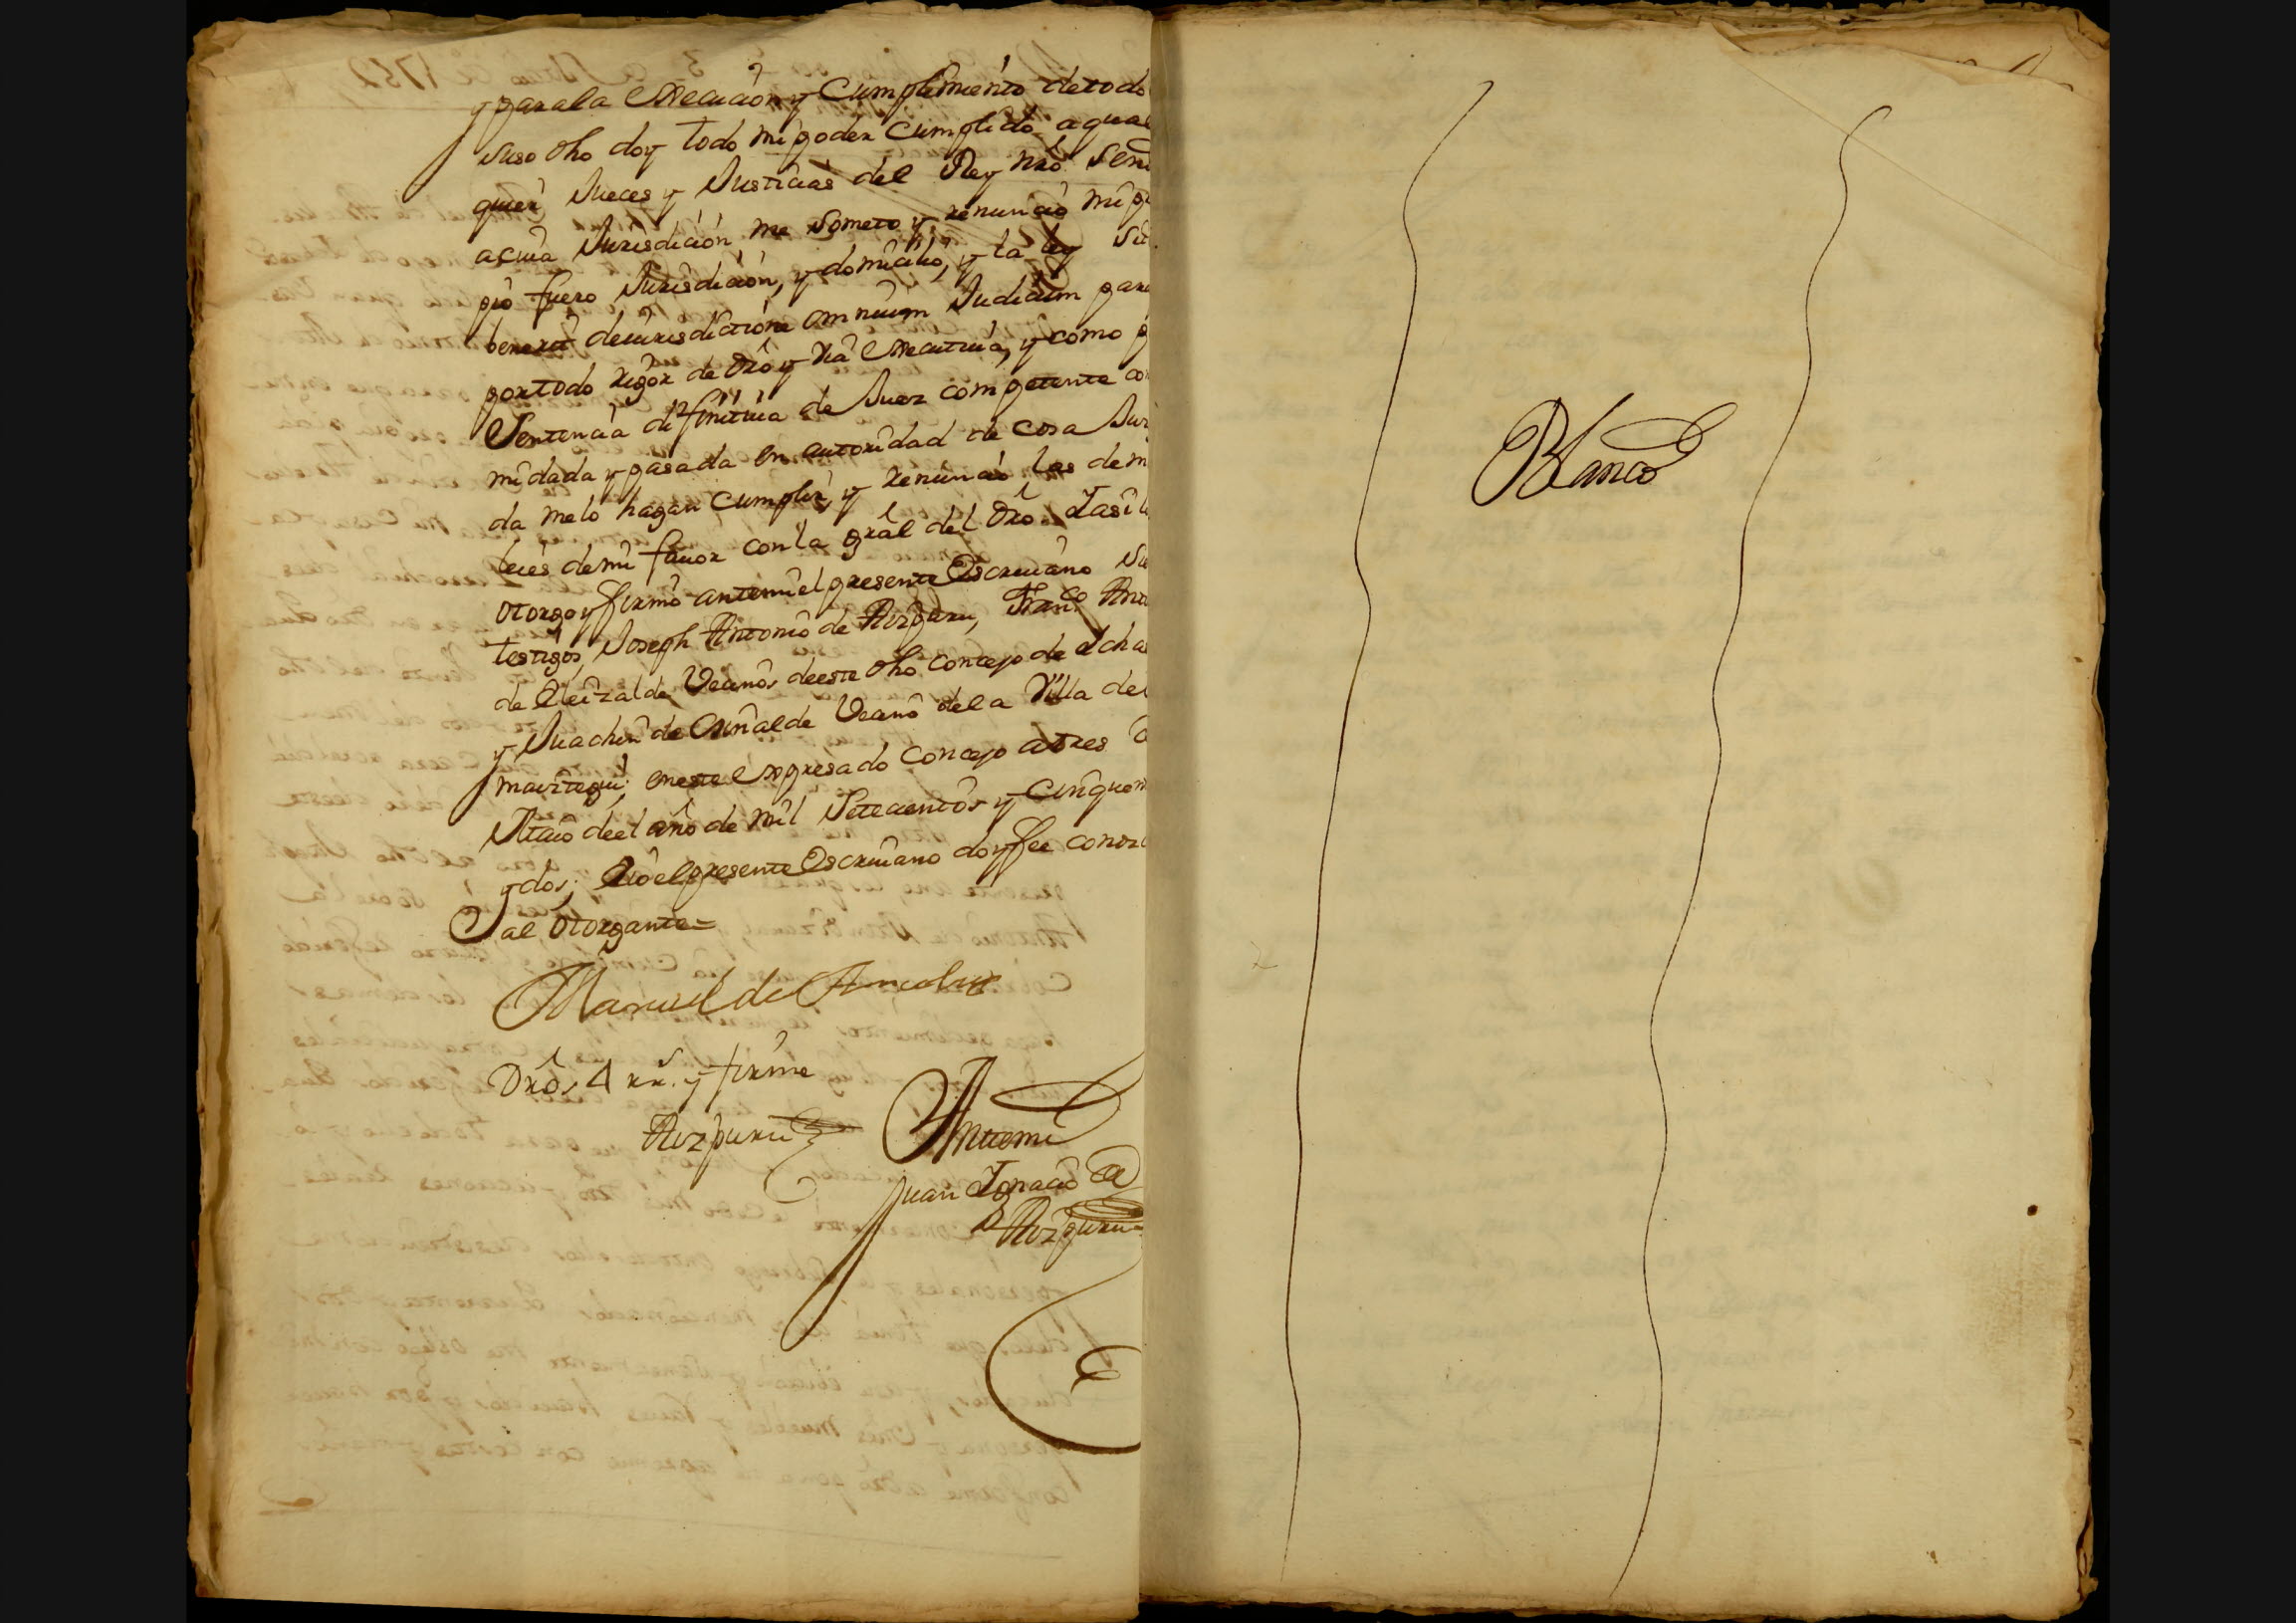 y para la execucion y Cumplimiento de todo
suso dho doy todo mi poder Cumplido a qual
quier Jueces y Justicias del Rey nrô Señ
a cuia Jurisdicion me someto y renuncio mi pr
pio fuero Jurisdicion, y domicilio, y la ley Sit
benerit de iurisdictione omnium Judicum para
por todo rigor de drô y via executiua, y como p
Sentencia difinitiua de Juez competente con
mi dada y pasada en autoridad de cosa Juz
da me lo hagan Cumplir, y renuncio las dem
leies de mi fauor con la grâl del drô Jasi lo
otorgo y firmo ante mi el presente Escriuano Sie
testigos, Joseph Antonio de Aizpuru, Franco Anto
de Eleizalde, Vecinos de este dho concejo de
y Juachin de Vecino de la Villa de
en este expresado Concejo a tres d
de el año de mil Setecientos y Cinquen
y dos; e Io el presente Escriuano doy fee conozc
al otorgante=
Manuel de
Drôs 4 rr.s y firme
Aizpuru
Ante mi
Juan Ignacio de
Aizpuru
Blanco